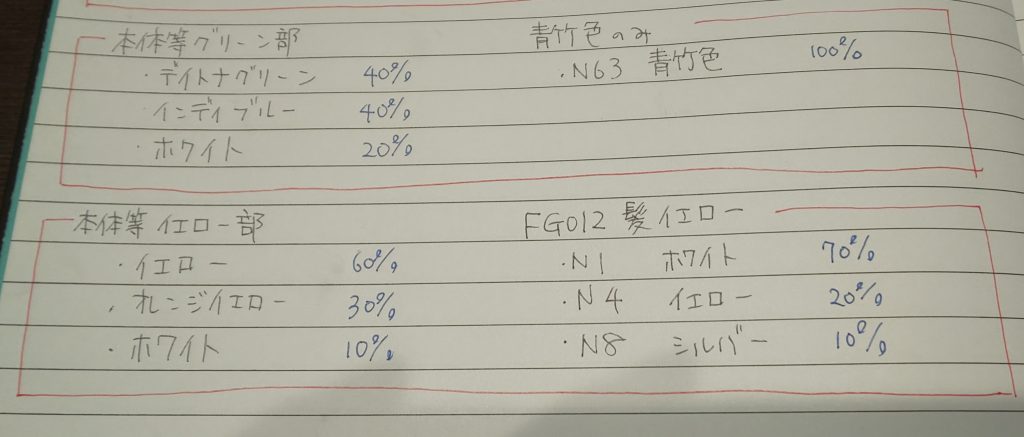 本体等グリーン部
・デイトナグリーン 40%
・インディブルー 40%
・ホワイト 20%
青竹色のみ
・N63 青竹色 100%
本体等イエロー部
・イエロー 60%
・オレンジイエロー 30%
・ホワイト 10%
FG012 髪イエロー
・N1 ホワイト 70%
・N4 イエロー 20%
・N8 シルバー 10%